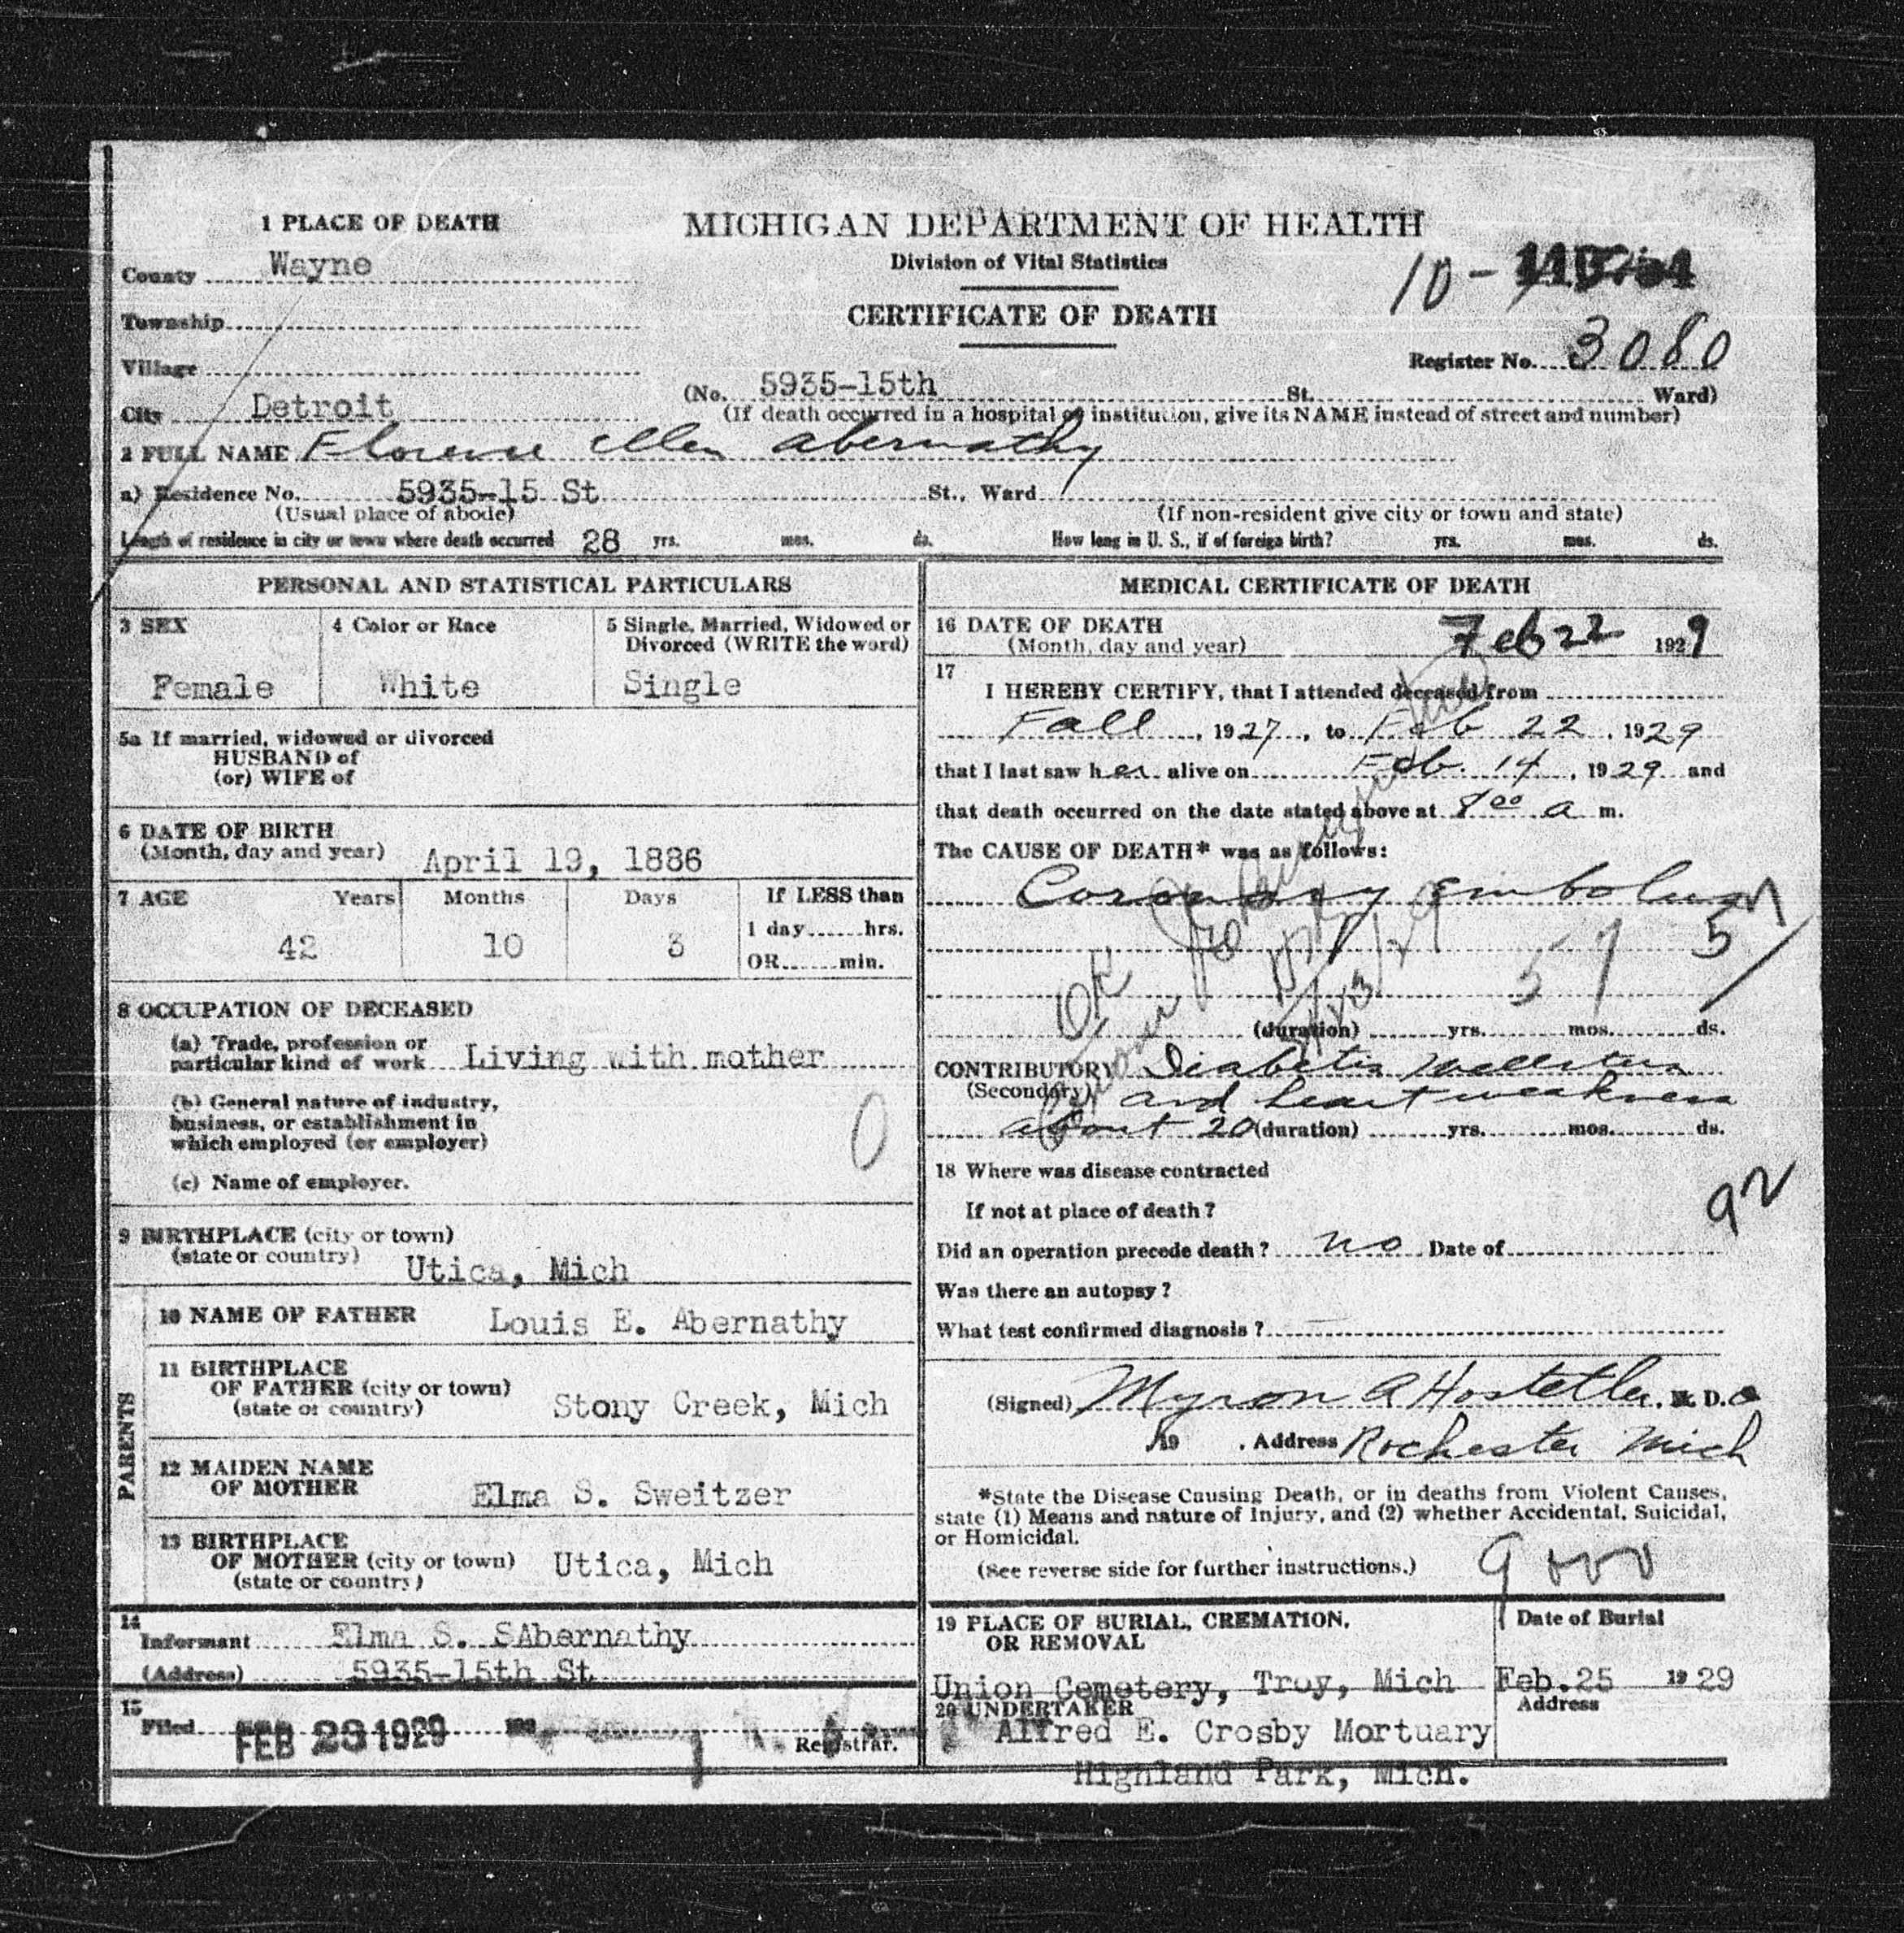 1 PLACE OF DEATH
MICHIGAN DEPARTMENT OF HEALTH
Division of Vital Statistics
CERTIFICATE OF DEATH
County Wayne
Township
Village
City Detroit
10 -
Register No. 3080
(No. 5935-15th St. Ward)
(If death occurred in a hospital or institution, give its NAME instead of street and number)
2 FULL NAME Florence Ellen Abernathy
a) Residence No. 5935-15 St St., Ward
(Usual place of abode) (If non-resident give city or town and state)
Length of residence in city or town where death occurred 28 yrs. mos. ds. How long in U. S., if of foreign birth? yrs. mos. ds.
PERSONAL AND STATISTICAL PARTICULARS
3 SEX
Female
4 Color or Race
White
5 Single, Married, Widowed or
Divorced (WRITE the word)
Single
5a If married, widowed or divorced
HUSBAND of
(or) WIFE of
6 DATE OF BIRTH
(Month, day and year) April 19, 1886
7 AGE Years Months Days If LESS than
1 day hrs.
42 10 3
OR min.
8 OCCUPATION OF DECEASED
(a) Trade, profession or
particular kind of work Living with mother
(b) General nature of industry,
business, or establishment in
which employed (or employer)
0
(c) Name of employer.
9 BIRTHPLACE (city or town)
(state or country) Utica, Mich
PARENTS
10 NAME OF FATHER Louis E. Abernathy
11 BIRTHPLACE
OF FATHER (city or town)
(state or country) Stony Creek, Mich
12 MAIDEN NAME
OF MOTHER Elma S. Sweitzer
13 BIRTHPLACE
OF MOTHER (city or town) Utica, Mich
(state or country)
14
Informant Elma S. SAbernathy
(Address) 5935-15th St
15
Filed FEB 23 1929
Registrar.
MEDICAL CERTIFICATE OF DEATH
16 DATE OF DEATH
(Month, day and year) Feb 22 1929
17
I HEREBY CERTIFY, that I attended deceased from
Fall, 1927, to Feb 22, 1929
that I last saw her alive on Feb. 14, 1929 and
that death occurred on the date stated above at 8 00 a m.
The CAUSE OF DEATH* was as follows:
Coronary Embolus
57
57
OK
(duration) yrs. mos. ds.
CONTRIBUTORY Diabetis Mellitus
(Secondary) and heart weakness
about 20 (duration) yrs. mos. ds.
18 Where was disease contracted
If not at place of death?
92
Did an operation precede death? no Date of
Was there an autopsy?
What test confirmed diagnosis?
(Signed) Myron A Hostetler, M. D.
19 . Address Rochester Mich
*State the Disease Causing Death, or in deaths from Violent Causes,
state (1) Means and nature of Injury, and (2) whether Accidental, Suicidal,
or Homicidal.
(See reverse side for further instructions.)
19 PLACE OF BURIAL, CREMATION,
OR REMOVAL
Date of Burial
Union Cemetery, Troy, Mich Feb. 25 1929
20 UNDERTAKER
Address
Alfred E. Crosby Mortuary
Highland Park, Mich.